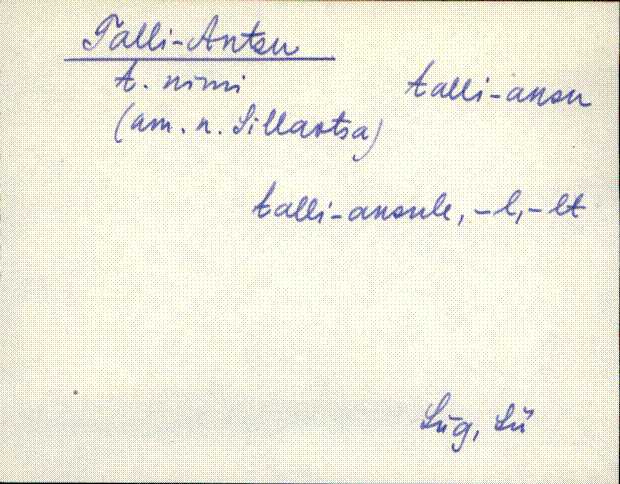 Talli-Antsu
t. nimi
talli-ansu
(am. n. Sillaotsa)
talli-ansule, -l, -lt
Lüg, Lü